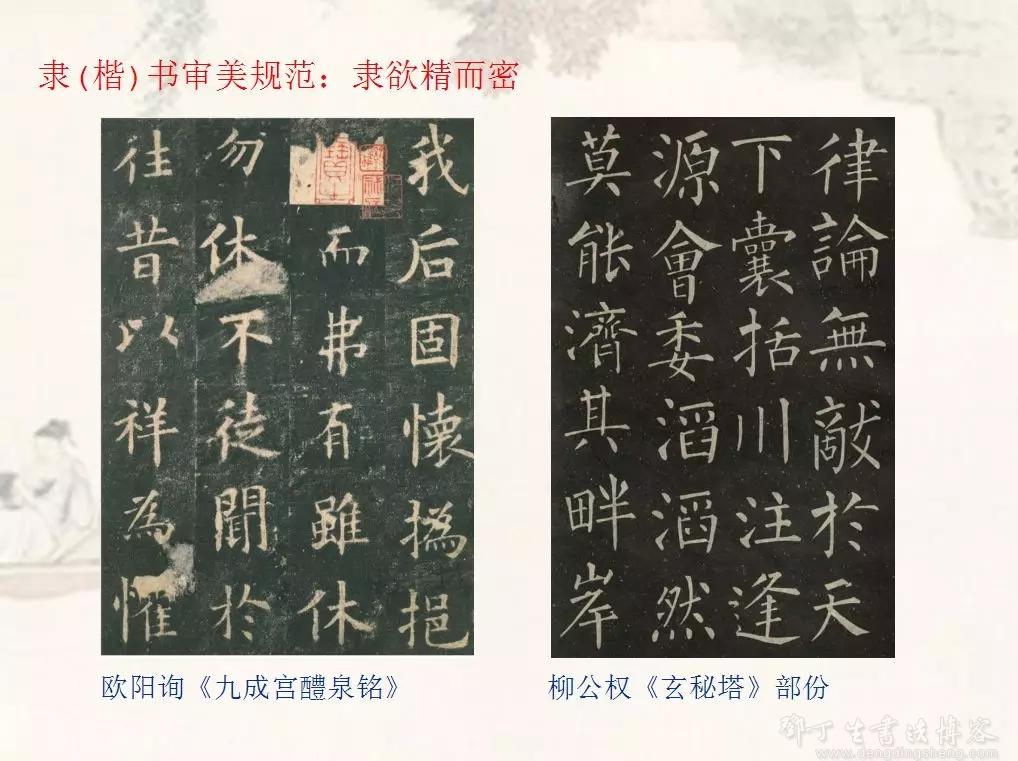 隶(楷)书审美规范：隶欲精而密
我后固懷撝挹
而弗有雖休
勿休不徒聞於
往昔以祥為懼
律論無敵於天
下囊括川注逢
源會委滔滔然
莫能濟其畔岸
欧阳询《九成宫醴泉铭》
柳公权《玄秘塔》部份
鄧丁生書法博客
www.dengdingsheng.com